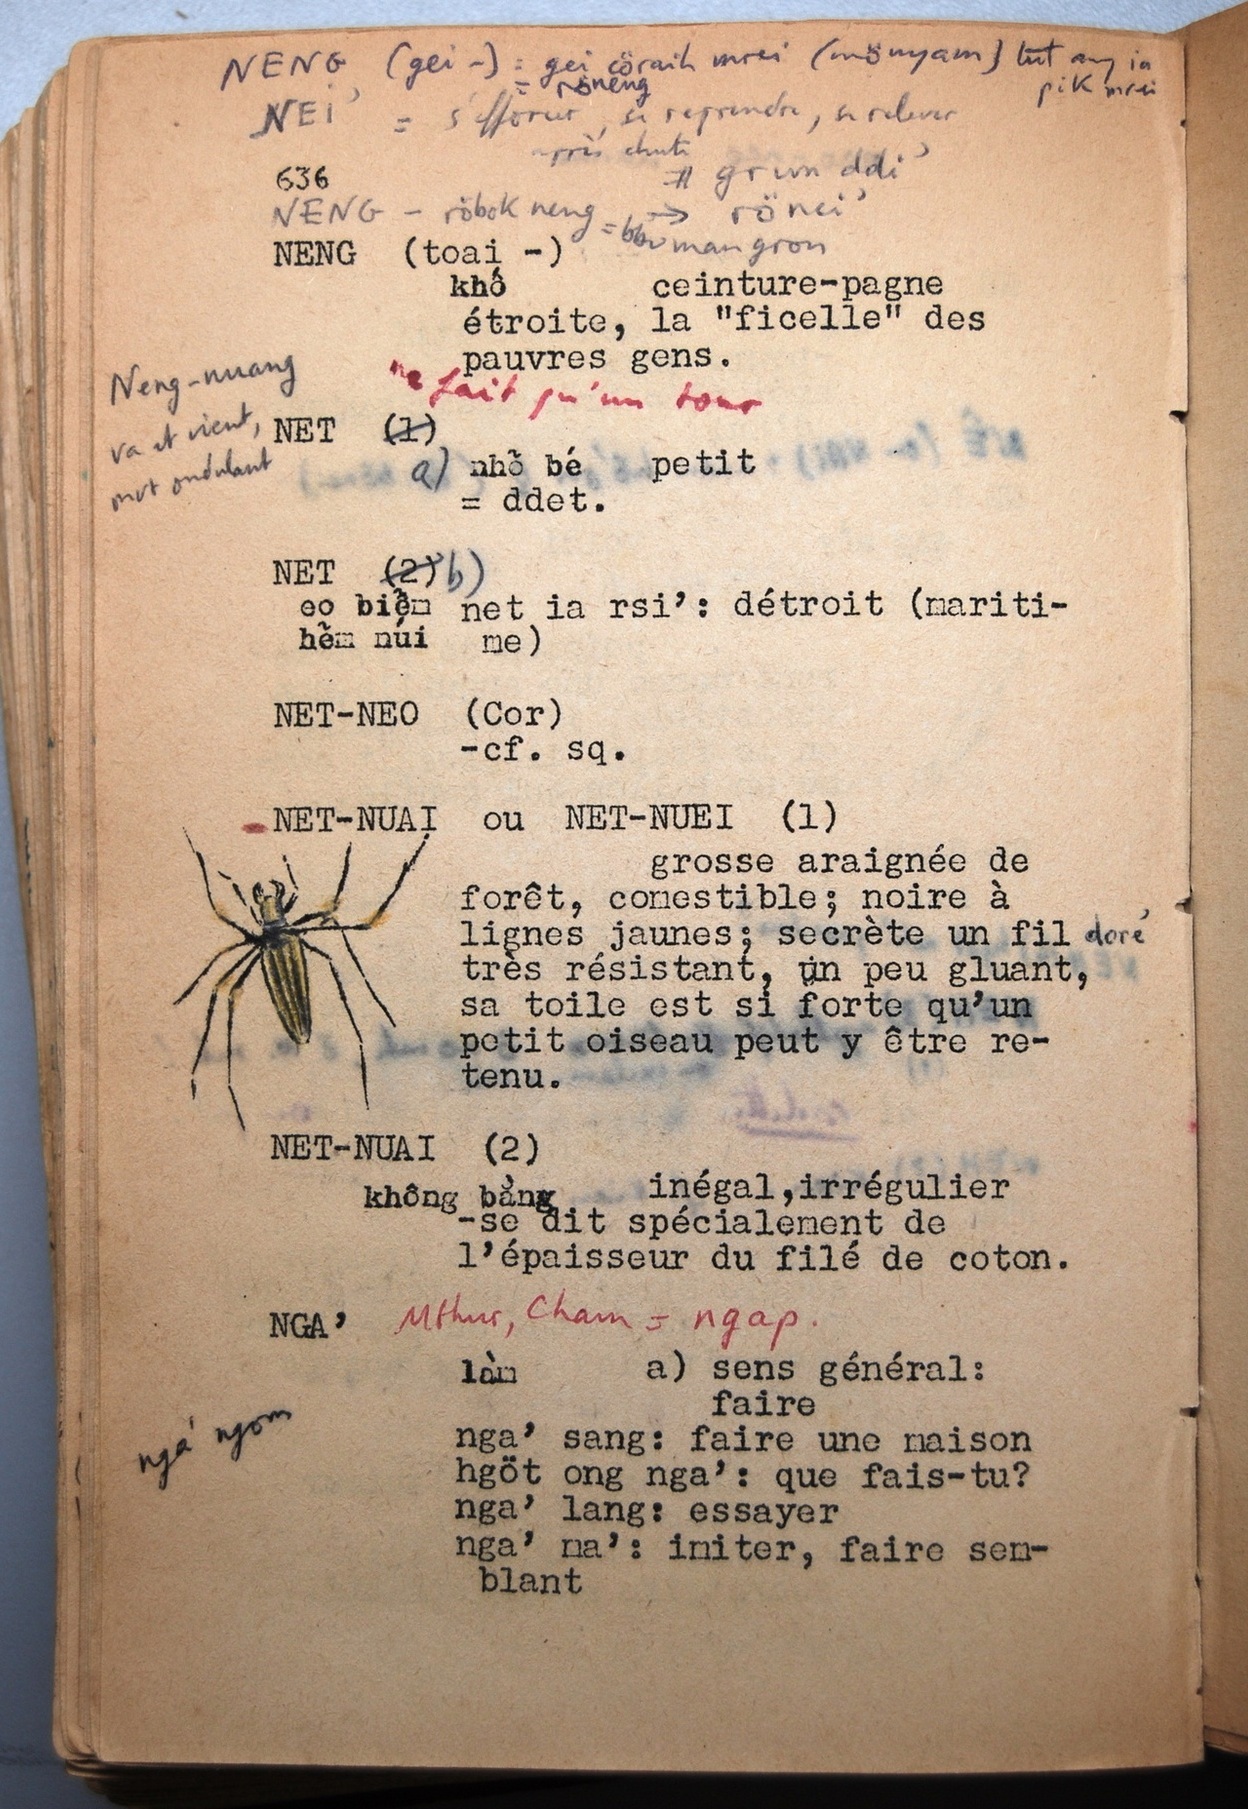 NENG (gei -) = gei cöraih mrei (mönyam) tŭt ang ia
= röneng pik mrei
NEI' = s'efforcer, se reprendre, se relever
après chute
636 # grun ddi'
NENG - röbok neng → rönei'
= bbu mangron
NENG (toai -)
khố ceinture-pagne
étroite, la "ficelle" des
pauvres gens.
ne fait qu'un tour
Neng-nuang
va et vient,
mvt ondulant
NET (1)
a) nhỏ bé petit
= ddet.
NET (2) b)
eo biển net ia rsi': détroit (mariti-
hẽm núi me)
NET-NEO (Cor)
-cf. sq.
NET-NUAI ou NET-NUEI (1)
grosse araignée de
forêt, comestible; noire à
lignes jaunes; secrète un fil doré
très résistant, un peu gluant,
sa toile est si forte qu'un
petit oiseau peut y être re-
tenu.
NET-NUAI (2)
không bằng inégal,irrégulier
-se dit spécialement de
l'épaisseur du filé de coton.
NGA' Mthur, Cham = ngap.
làm a) sens général:
faire
nga' ngom
nga' sang: faire une maison
hgöt ong nga': que fais-tu?
nga' lang: essayer
nga' ma': imiter, faire sem-
blant